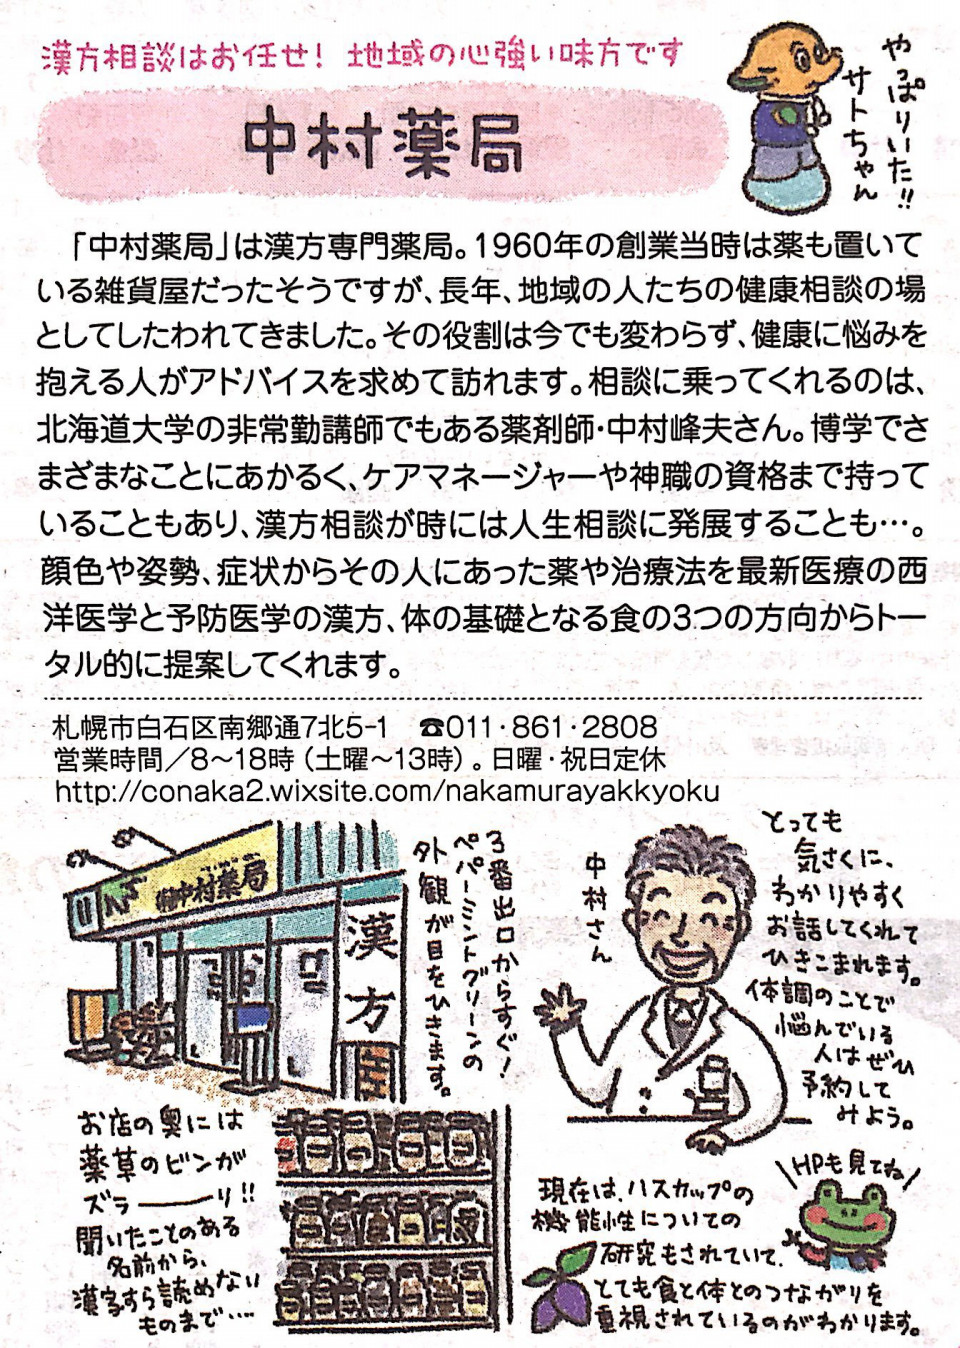 漢方相談はお任せ! 地域の心強い味方です
中村薬局
やっぱりいた!!
サトちゃん
「中村薬局」は漢方専門薬局。1960年の創業当時は薬も置いて
いる雑貨屋だったそうですが、長年、地域の人たちの健康相談の場
としてしたわれてきました。その役割は今でも変わらず、健康に悩みを
抱える人がアドバイスを求めて訪れます。相談に乗ってくれるのは、
北海道大学の非常勤講師でもある薬剤師・中村峰夫さん。博学でさ
まざまなことにあかるく、ケアマネージャーや神職の資格まで持って
いることもあり、漢方相談が時には人生相談に発展することも…。
顔色や姿勢、症状からその人にあった薬や治療法を最新医療の西
洋医学と予防医学の漢方、体の基礎となる食の3つの方向からトー
タル的に提案してくれます。
札幌市白石区南郷通7北5-1 ☎011・861・2808
営業時間/8〜18時(土曜〜13時)。日曜・祝日定休
http://conaka2.wixsite.com/nakamurayakkyoku
中村薬局
漢方
3番出口からすぐ!
ペパーミントグリーンの
外観が目をひきます。
中村さん
とっても
気さくに、
わかりやすく
お話してくれて
ひきこまれます。
体調のことで
悩んでいる
人はぜひ
予約して
みよう。
お店の奥には
薬草のビンが
ズラーーり!!
聞いたことのある
名前から、
漢字すら読めない
ものまで…
\HPも見てね/
現在は、ハスカップの
機能性についての
研究もされていて、
とても食と体とのつながりを
重視されているのがわかります。